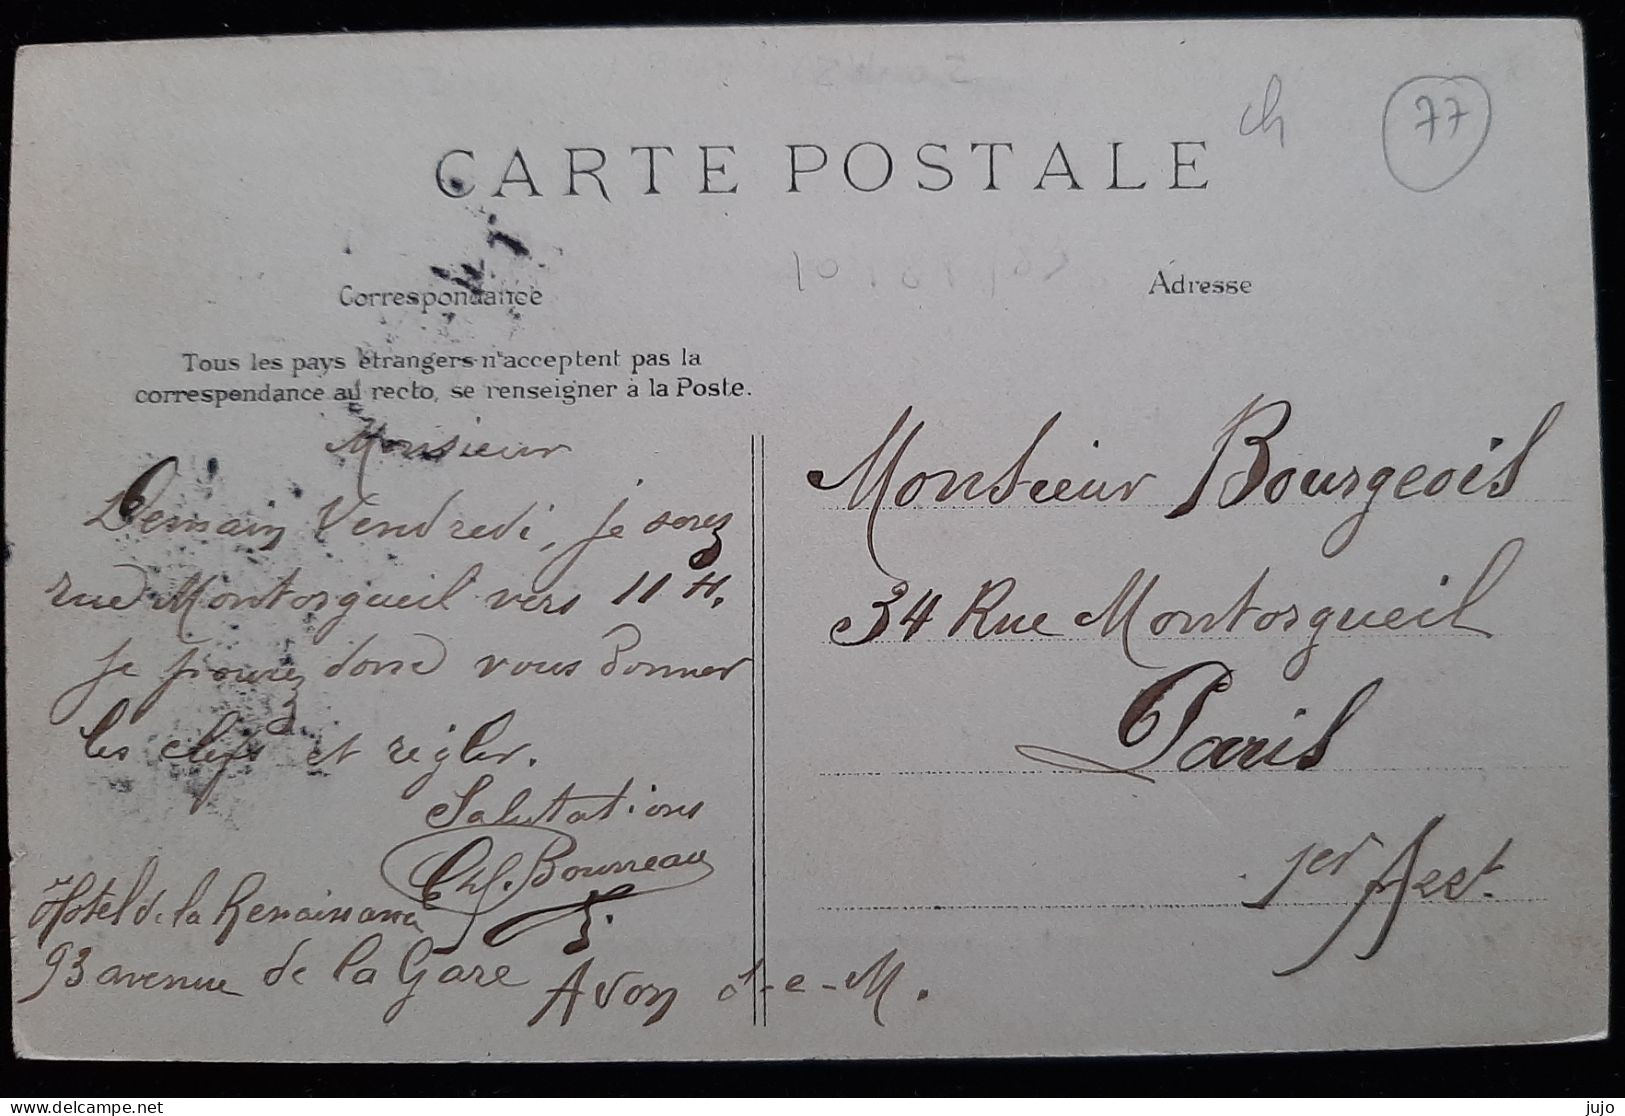 ch
77
CARTE POSTALE
Correspondance
Adresse
Tous les pays étrangers n'acceptent pas la
correspondance au recto, se renseigner à la Poste.
Monsieur
Demain Vendredi, je serez
rue Montorgueil vers 11 H.
je pourez donc vous donner
les clefs et régler.
Salutations
Ch. Bourreau
Hotel de la Renaissance
93 avenue de la Gare Avon S-e-M.
Monsieur Bourgeois
34 Rue Montorgueil
Paris
1er Arrt.
delcampe.net
jujo